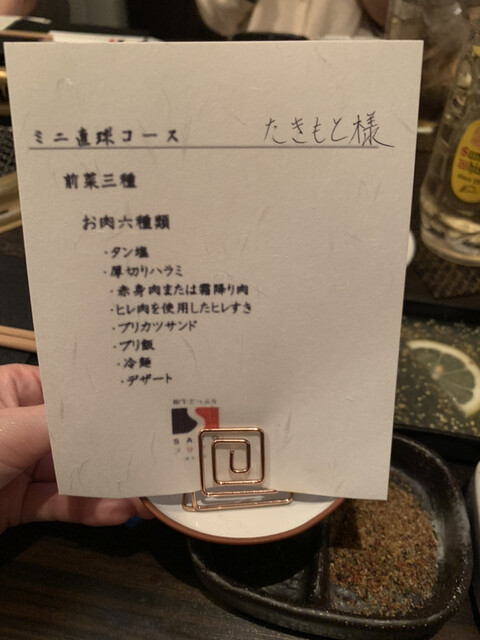 ミニ直球コース
たきもと様
前菜三種
お肉六種類
・タン塩
・厚切りハラミ
・赤身肉または霜降り肉
・ヒレ肉を使用したヒレすき
・ブリカツサンド
・ブリ飯
・冷麺
・デザート